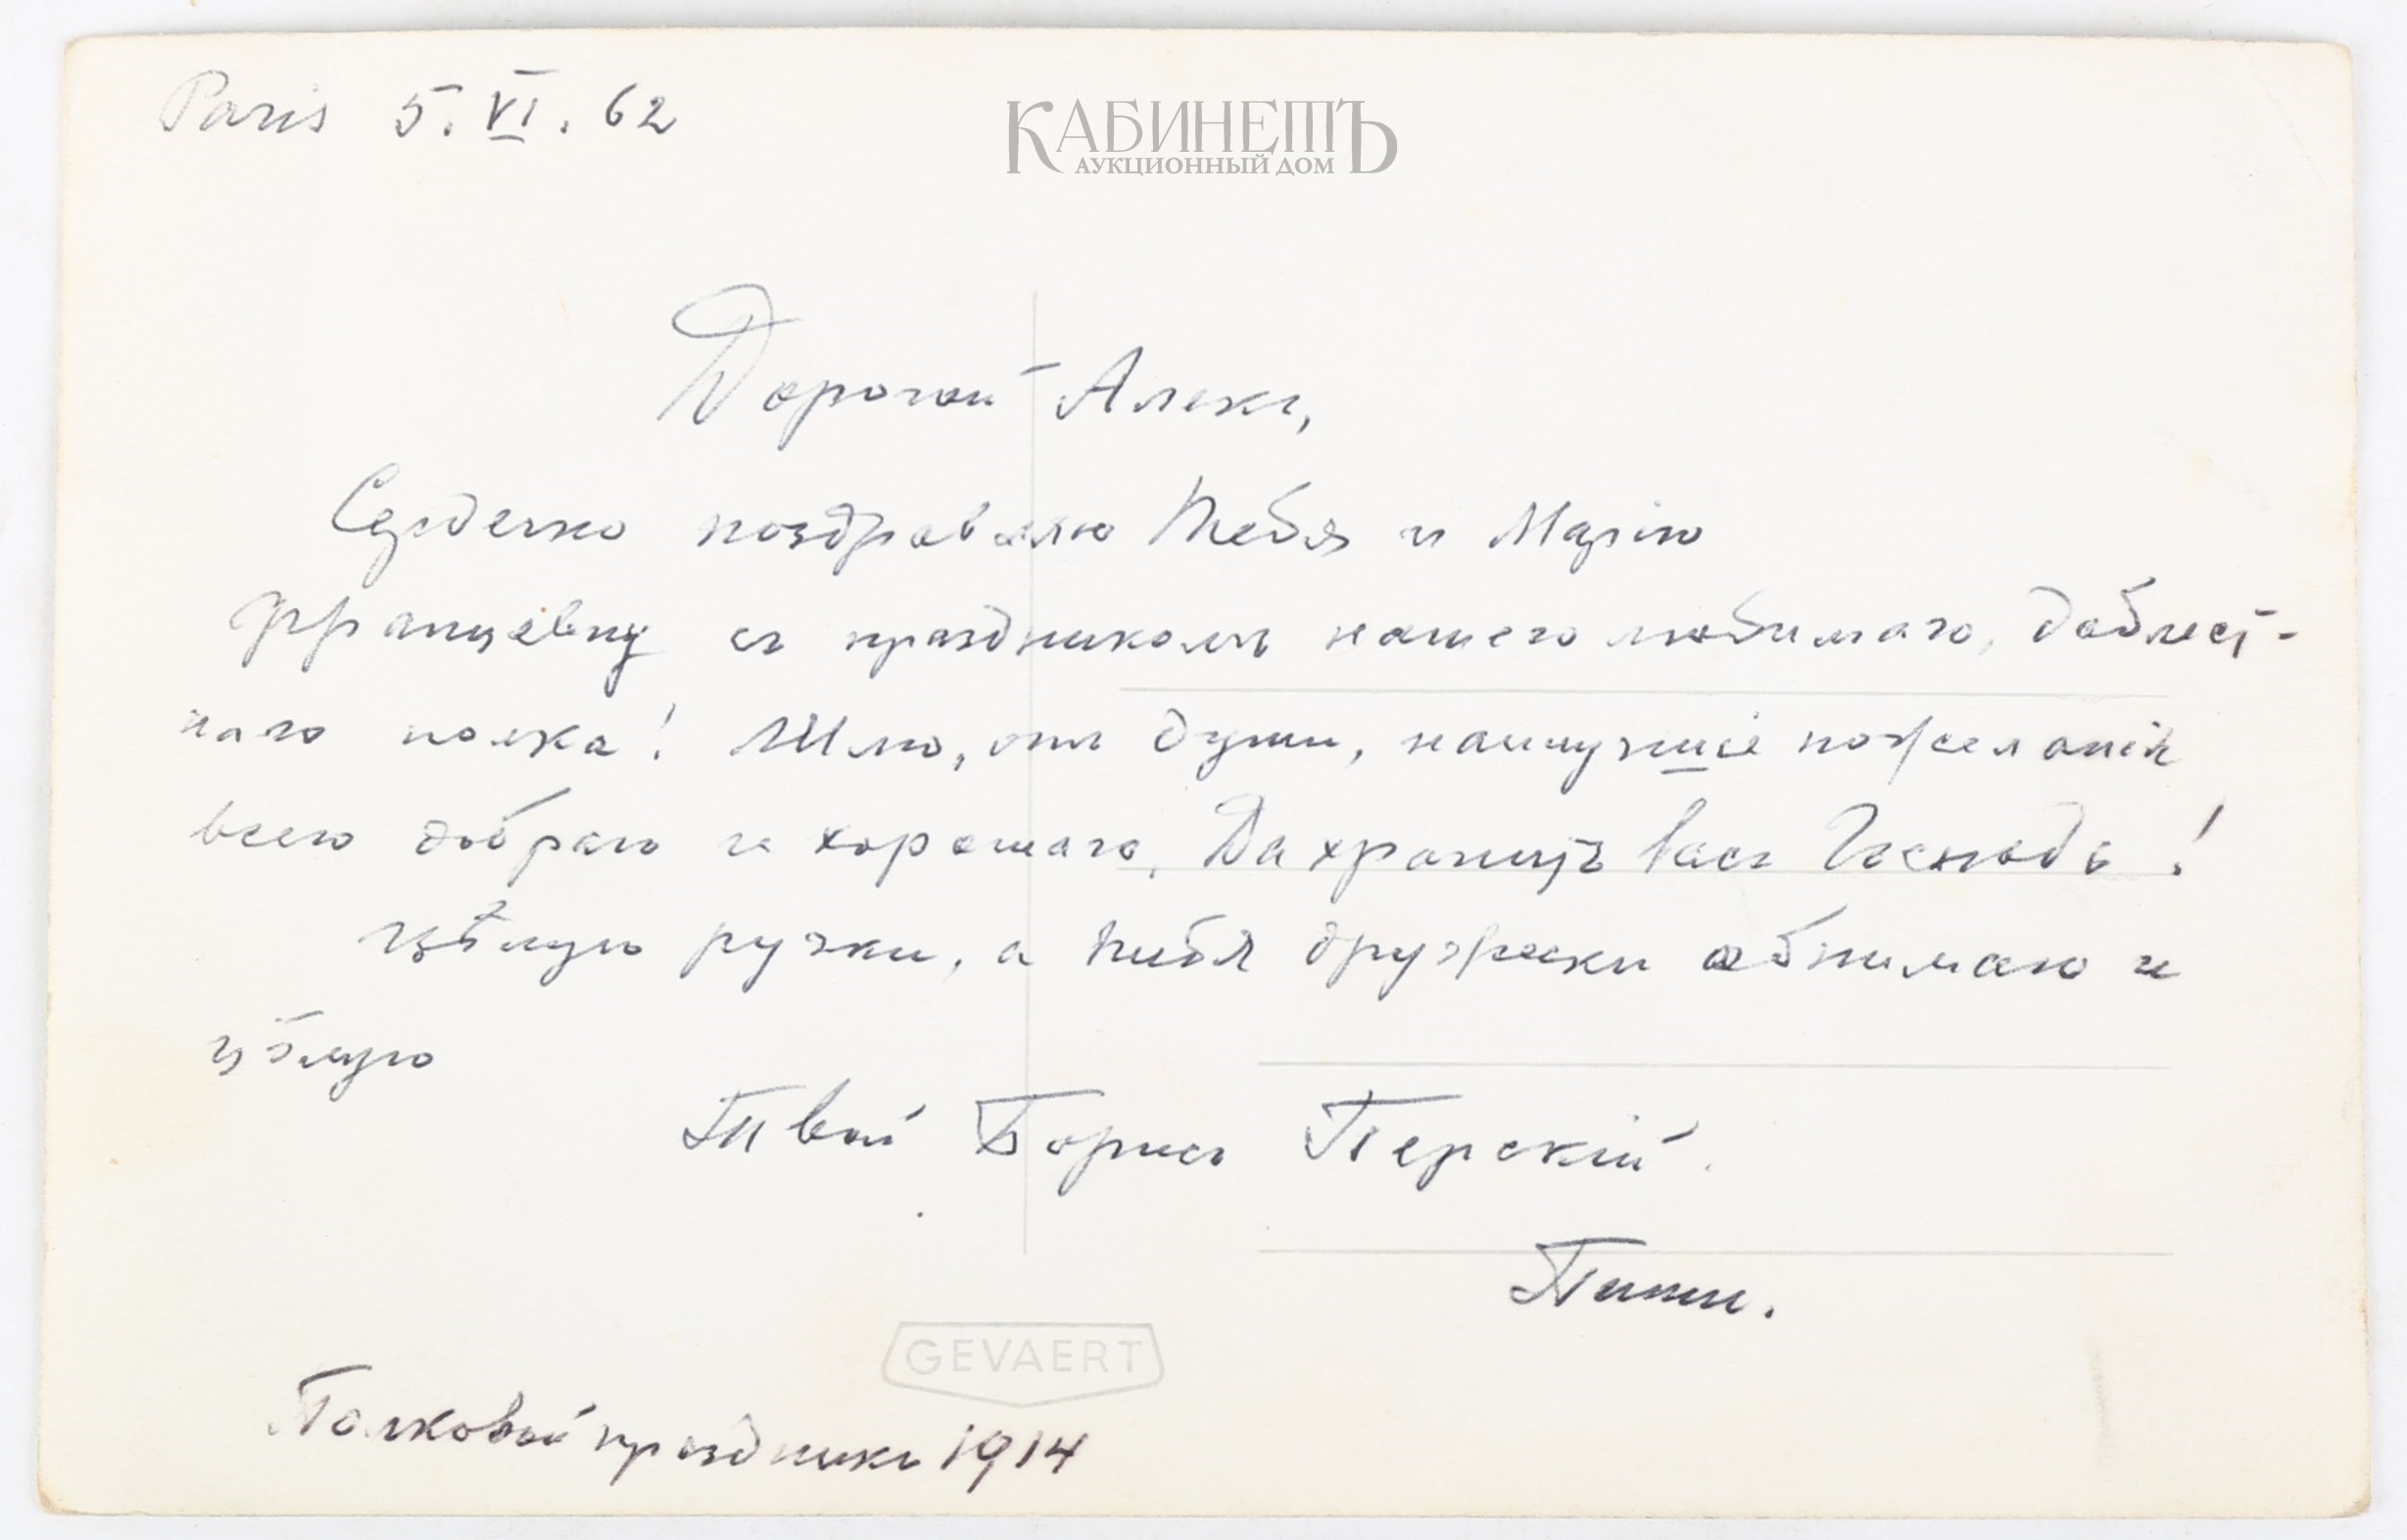 Paris 5.VI.62
КАБИНЕТЪ
АУКЦИОННЫЙ ДОМ
Дорогой Алекс,
Сердечно поздравляю Тебя и Марію
Францевну съ праздникомъ нашего любимаго, доблест-
наго полка! Шлю, отъ души, наилучшіе пожеланія
всего добраго и хорошаго, Да хранитъ васъ Господь!
Цѣлую ручки, а тебя дружески обнимаю и
цѣлую
Твой Борисъ Перскій.
GEVAERT
Полковой праздникъ 1914